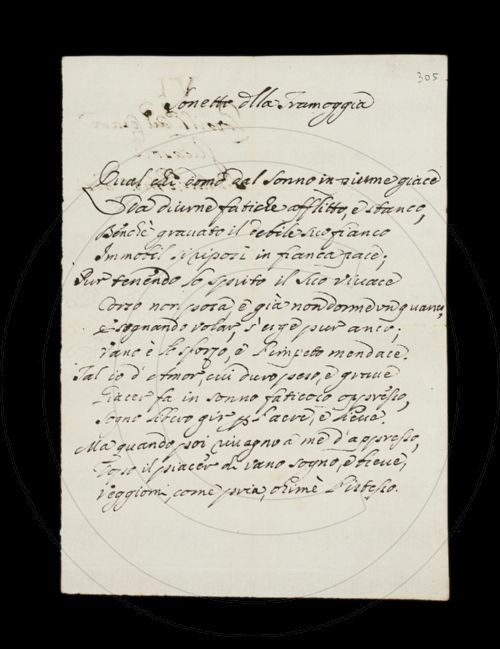 305
Sonetto dlla Tramoggia
Qual chi domo dal sonno in piume giace
Da diurne fatiche afflitto, e stanco,
Benche gravato il debile suo fianco
Immobil si riposi in fianca pace;
Pur tenendo lo spirto il suo vivace
Corso non posa, e già non dorme unquanco,
e sognando volar, s'erge pur anco;
Vano è lo sforzo, e l'impeto mendace.
Tal io d'Amor, cui duro peso, e grave
Giacer fa in sonno faticoso oppresso,
sogno lieve gir p l'aere, e
Ma quando poi rivegno à me d'appresso,
il piacer di vano sogno, e breve,
Veggiomi, come pria, ohimè l'istesso.